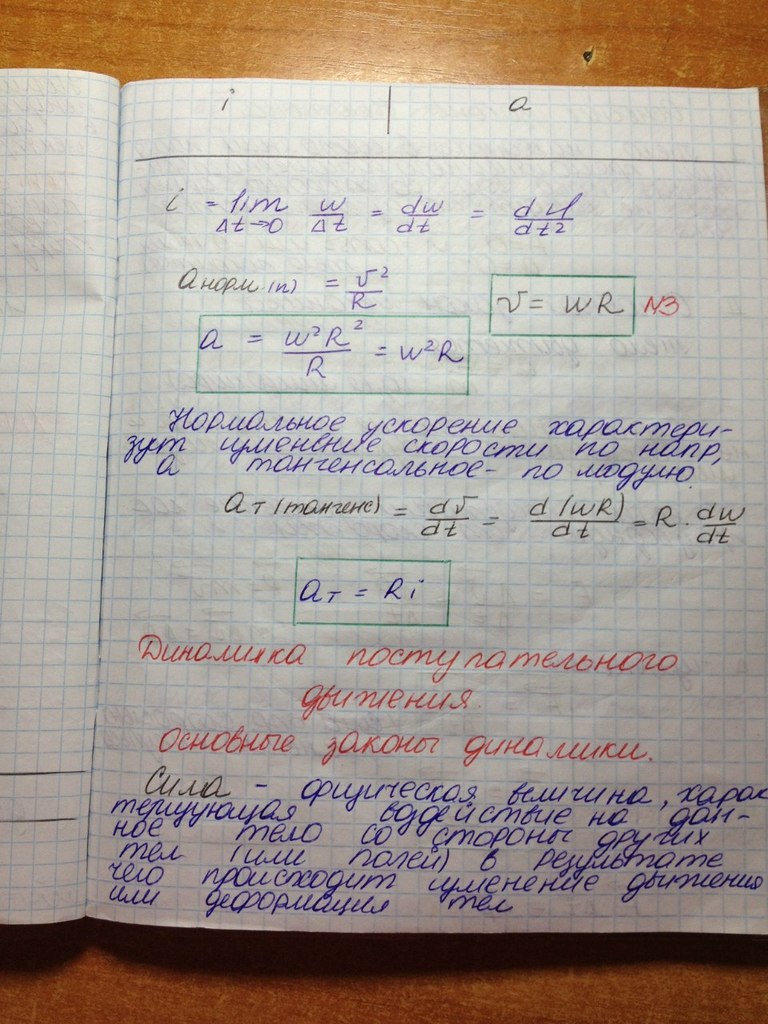 i | a
i = lim Δt→0 w/Δt = dw/dt = dφ/dt2
a норм (n) = v²/R
v = wR N3
a = w²R²/R = w²R
Нормальное ускорение характери-
зует изменение скорости по напр,
а тангенсальное - по модулю.
aт (тангенс) = dv/dt = d(wR)/dt = R · dw/dt
aт = Ri
Динамика поступательного
движения.
Основные законы динамики.
Сила - физическая величина, харак
теризующая воздействие на дан-
ное тело со стороны других
тел (или полей) в результате
чего происходит изменение движения
или деформация тел